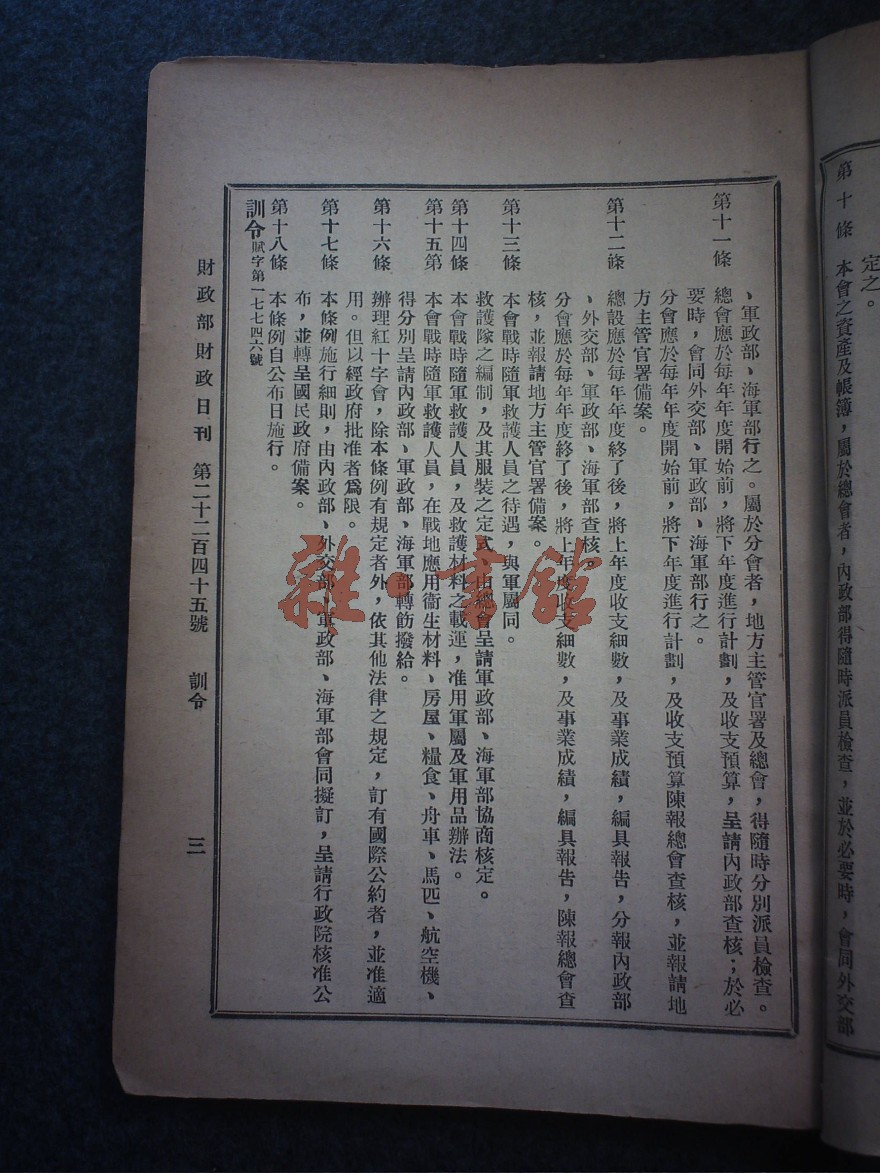 第十條　本會之資產及帳簿，屬於總會者，內政部得隨時派員檢查，並於必要時，會同外交部
定之。
、軍政部、海軍部行之。屬於分會者，地方主管官署及總會，得隨時分別派員檢查。
第十一條　總會應於每年年度開始前，將下年度進行計劃，及收支預算，呈請內政部查核；於必
要時，會同外交部、軍政部、海軍部行之。
分會應於每年年度開始前，將下年度進行計劃，及收支預算陳報總會查核，並報請地
方主管官署備案。
第十二條　總設應於每年年度終了後，將上年度收支細數，及事業成績，編具報告，分報內政部
、外交部、軍政部、海軍部查核。
分會應於每年年度終了後，將上年度收支細數，及事業成績，編具報告，陳報總會查
核，並報請地方主管官署備案。
第十三條　本會戰時隨軍救護人員之待遇，與軍屬同。
救護隊之編制，及其服裝之定式，由總會呈請軍政部、海軍部協商核定。
第十四條　本會戰時隨軍救護人員，及救護材料之載運，准用軍屬及軍用品辦法。
第十五第　本會戰時隨軍救護人員，在戰地應用衞生材料、房屋、糧食、舟車、馬匹、航空機、
得分別呈請內政部、軍政部、海軍部轉飭撥給。
第十六條　辦理紅十字會，除本條例有規定者外，依其他法律之規定，訂有國際公約者，並准適
用。但以經政府批准者爲限。
第十七條　本條例施行細則，由內政部、外交部、軍政部、海軍部會同擬訂，呈請行政院核准公
布，並轉呈國民政府備案。
第十八條　本條例自公布日施行。
訓令賦字第一七七四六號
財政部財政日刊　第二十二百四十五號　訓令　三
雜·書館